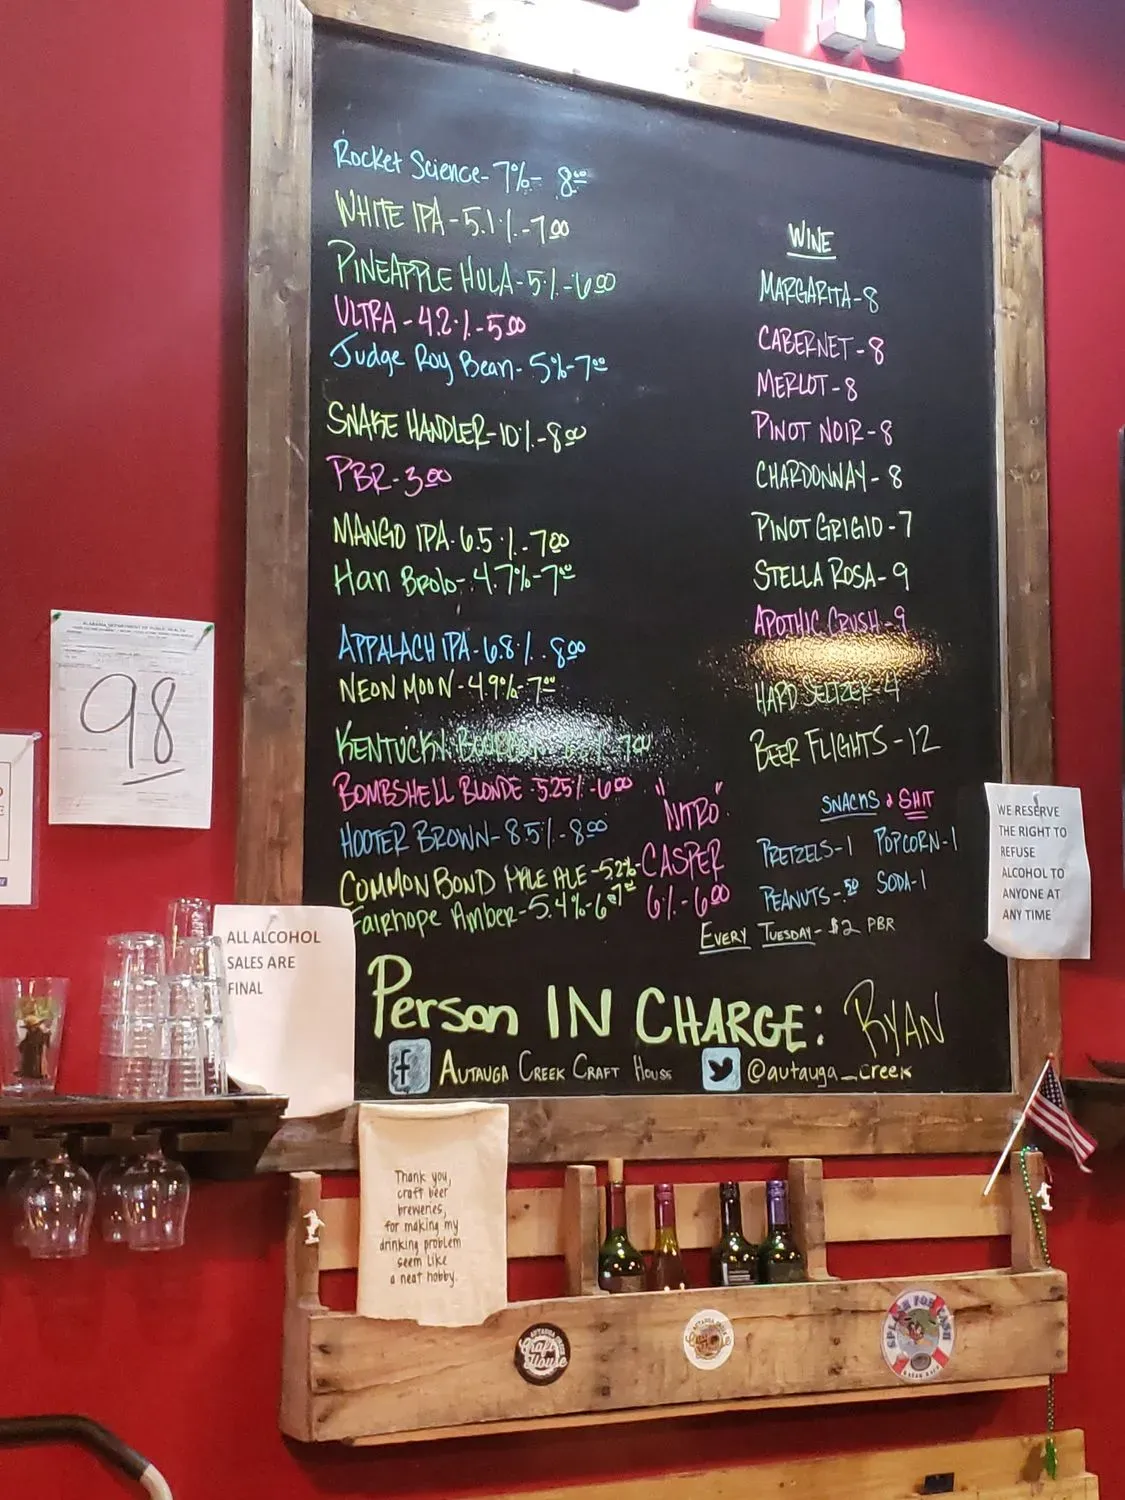 Rocket Science- 7%- 8.00
WHITE IPA - 5.1% - 7.00
PINEAPPLE HULA - 5% - 6.00
ULTRA - 4.2% - 5.00
Judge Roy Bean- 5%- 7.00
SNAKE HANDLER - 10% - 8.00
PBR - 3.00
MANGO IPA - 6.5% - 7.00
Han Brolo- 4.7%- 7.00
APPALACH IPA - 6.8% - 8.00
NEON MOON - 4.9% - 7.00
KENTUCKY BOURBON 7.00
BOMBSHELL BLONDE - 5.25% - 6.00
HOOTER BROWN - 8.5% - 8.00
COMMON BOND PALE ALE - 5.2% -
Fairhope Amber - 5.4% - 6.00
"NITRO"
CASPER
6% - 6.00
WINE
MARGARITA - 8
CABERNET - 8
MERLOT - 8
PINOT NOIR - 8
CHARDONNAY - 8
PINOT GRIGIO - 7
STELLA ROSA - 9
APOTHIC CRUSH - 9
HARD SELTZER - 4
BEER FLIGHTS - 12
SNACKS & SHIT
PRETZELS - 1 POPCORN - 1
PEANUTS - .50 SODA - 1
EVERY TUESDAY - $2 PBR
Person IN CHARGE: RYAN
f AUTAUGA CREEK CRAFT HOUSE @autauga_creek
ALABAMA DEPARTMENT OF PUBLIC HEALTH
98
ALL ALCOHOL
SALES ARE
FINAL
WE RESERVE
THE RIGHT TO
REFUSE
ALCOHOL TO
ANYONE AT
ANY TIME
Thank you,
craft beer
breweries,
for making my
drinking problem
seem like
a neat hobby.
AUTAUGA CREEK
Craft
House
SPLASH FOR CASH